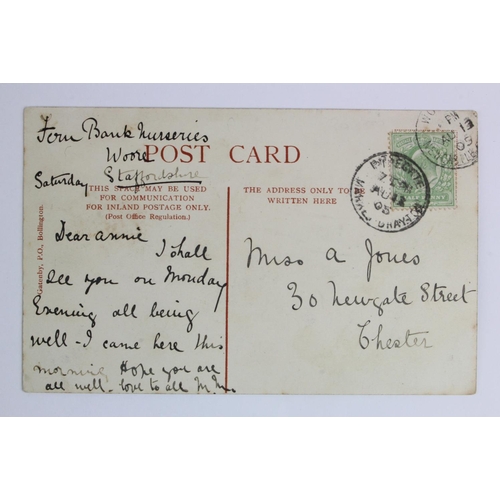 Fern Bank Nurseries
Woore
Staffordshire
Saturday
POST CARD
THIS SPACE MAY BE USED
FOR COMMUNICATION
FOR INLAND POSTAGE ONLY.
(Post Office Regulation.)
THE ADDRESS ONLY TO BE
WRITTEN HERE
Dear Annie I shall
see you on Monday
Evening all being
well - I came here this
morning Hope you are
all well - love to all M.M.
Miss A Jones
30 Newgate Street
Chester
P.O., Bollington.